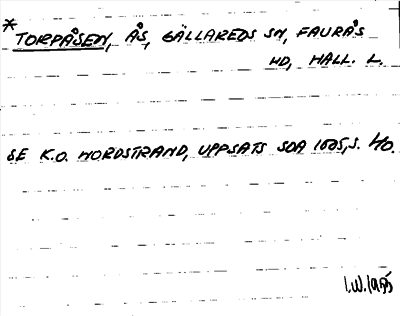 * TORPÅSEN, ÅS, GÄLLAREDS SN, FAURÅS
HD, HALL. L.
SE K.O. NORDSTRAND, UPPSATS SOA 1605, S. 40.
I.W. 1955